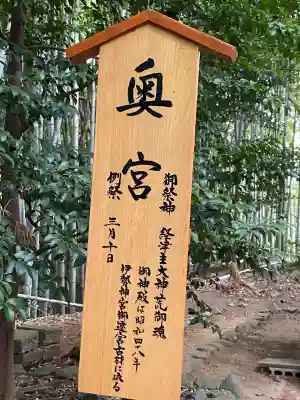 奥宮
御祭神 祭津主大神荒御魂
御神殿は昭和四十八年
伊勢神宮御遷宮古材に依る
例祭 三月十日